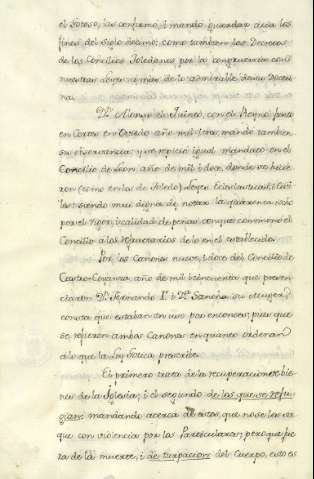 el Gotoso, las confirmó, i mandó guardar acia los
fines del siglo decimo; como tambien los Decretos
de los Concilios Toledanos por la conformidad con
nuestras Leyes, à mas de lo admirable de su Doctri
na.
Dn. Alonso el Quinto, con el Reyno junto
en Cortes en Oviedo año mil i tres, mandó tambien
su observancia; y se repitió igual mandato en el
Concilio de Leon año de mil i doce, donde se hicie
ron (como en los de Toledo) Leyes Eclesiasticas, i Civi
les: siendo mui digna de notar la
por el rigor, i calidad de penas con que conminó el
Concilio à los refractarios de lo en el establecido.
Por los Canones nueve, i doce del Concilio de
Castro-Coyanza, año de mil i cinquenta que presen
ciaron Dn. Fernando Iº i Dª. Sancha, su muger,
consta que estaban en uso por entonces; pues que
se refieren ambos Canones en quanto ordenan
à lo que la Ley Gotica prescribe.
El primero trata de la recuperacion de bie
nes de la Iglesia; i el segundo de los que se refu
gian: mandando acerca de estos, que no se les sa
que con violencia por los Particulares; pero que fue
ra de la muerte, i de turpacion del Cuerpo, esto es